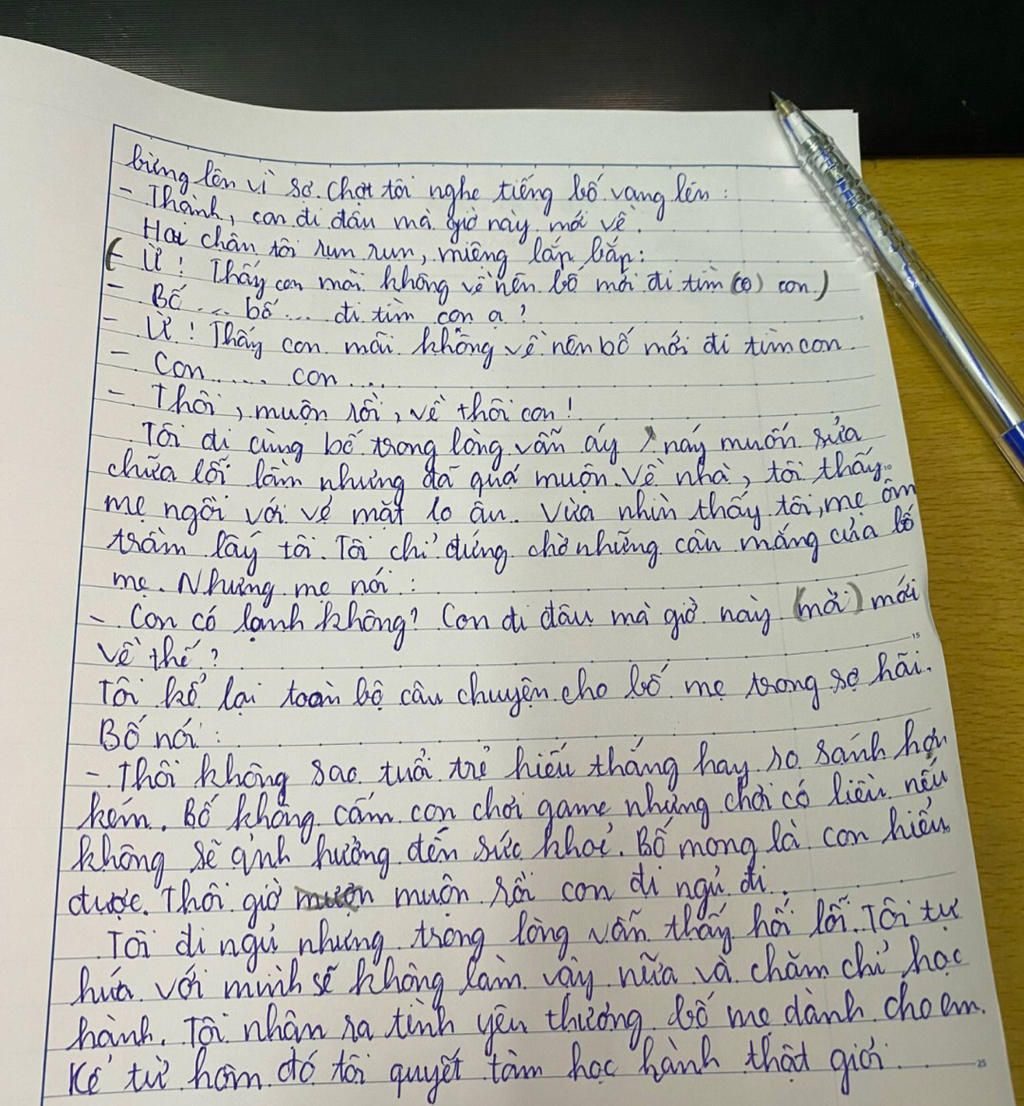 bừng lên vì sợ. Chợt tôi nghe tiếng bố vang lên:
- Thành, con đi đâu mà giờ này mới về.
Hai chân tôi run run, miệng lắp bắp:
(- Ừ! Thấy con mãi không về nên bố mới đi tìm (co) con)
- Bố ... bố ... đi tìm con ạ?
- Ừ! Thấy con mãi không về nên bố mới đi tìm con.
- Con ..... con ....
- Thôi, muộn rồi, về thôi con!
Tôi đi cùng bố trong lòng vẫn áy náy muốn sửa
chữa lỗi lầm nhưng đã quá muộn. Về nhà, tôi thấy
mẹ ngồi với vẻ mặt lo âu. Vừa nhìn thấy tôi, mẹ ôm
trầm lấy tôi. Tôi chỉ đứng chờ những câu mắng của bố
mẹ. Nhưng mẹ nói:
- Con có lạnh không? Con đi đâu mà giờ này (mở) mới
về thế?
Tôi kể lại toàn bộ câu chuyện cho bố mẹ trong sợ hãi.
Bố nói:
- Thôi không sao tuổi trẻ hiếu thắng hay so sánh hơn
kém. Bố không cấm con chơi game nhưng chơi có liều nếu
không sẽ ảnh hưởng đến sức khoẻ. Bố mong là con hiểu
được. Thôi giờ muộn rồi con đi ngủ đi.
Tôi đi ngủ nhưng trong lòng vẫn thấy hối lỗi. Tôi tự
hứa với mình sẽ không làm vậy nữa và chăm chỉ học
hành. Tôi nhận ra tình yêu thương bố mẹ dành cho em.
Kể từ hôm đó tôi quyết tâm học hành thật giỏi.